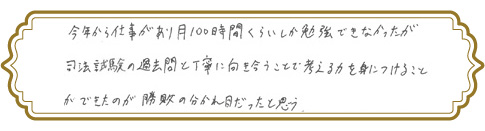 今年から仕事があり月100時間くらいしか勉強できなかったが
司法試験の過去問と丁寧に向き合うことで考える力を身につけること
ができたのが勝敗の分かれ目だったと思う.